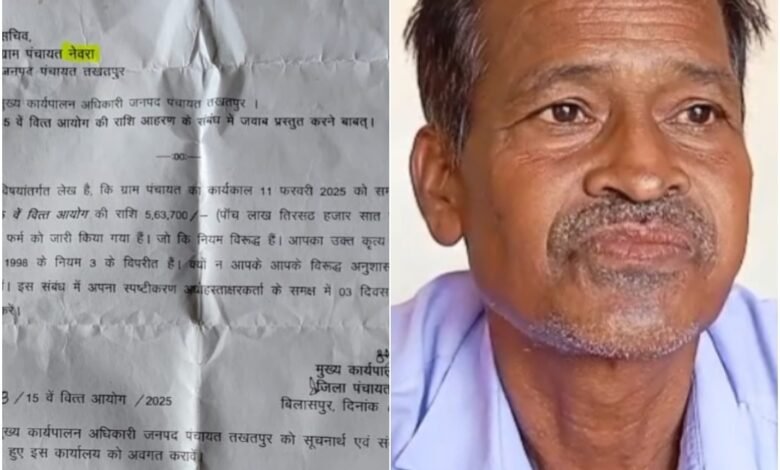 सचिव,
ग्राम पंचायत नेवरा
जनपद पंचायत तखतपुर
मुख्य कार्यपालन अधिकारी जनपद पंचायत तखतपुर ।
5 वें वित्त आयोग की राशि आहरण के संबंध में जवाब प्रस्तुत करने बाबत्।
—00:——
विषयांतर्गत लेख है, कि ग्राम पंचायत का कार्यकाल 11 फरवरी 2025 को
वें वित्त आयोग की राशि 5,63,700/– (पाँच लाख तिरसठ हजार सात
फर्म को जारी किया गया हैं। जो कि नियम विरूद्ध हैं। आपका उक्त कृत्य
1998 के नियम 3 के विपरीत है। क्यों न आपके आपके विरूद्ध
इस संबंध में अपना स्पष्टीकरण के समक्ष में 03 दिवस
करें।
मुख्य
जिला पंचायत
/15 वें वित्त आयोग /2025
बिलासपुर, दिनांक
मुख्य कार्यपालन अधिकारी जनपद पंचायत तखतपुर को सूचनार्थ एवं
हुए इस कार्यालय को अवगत करावें।